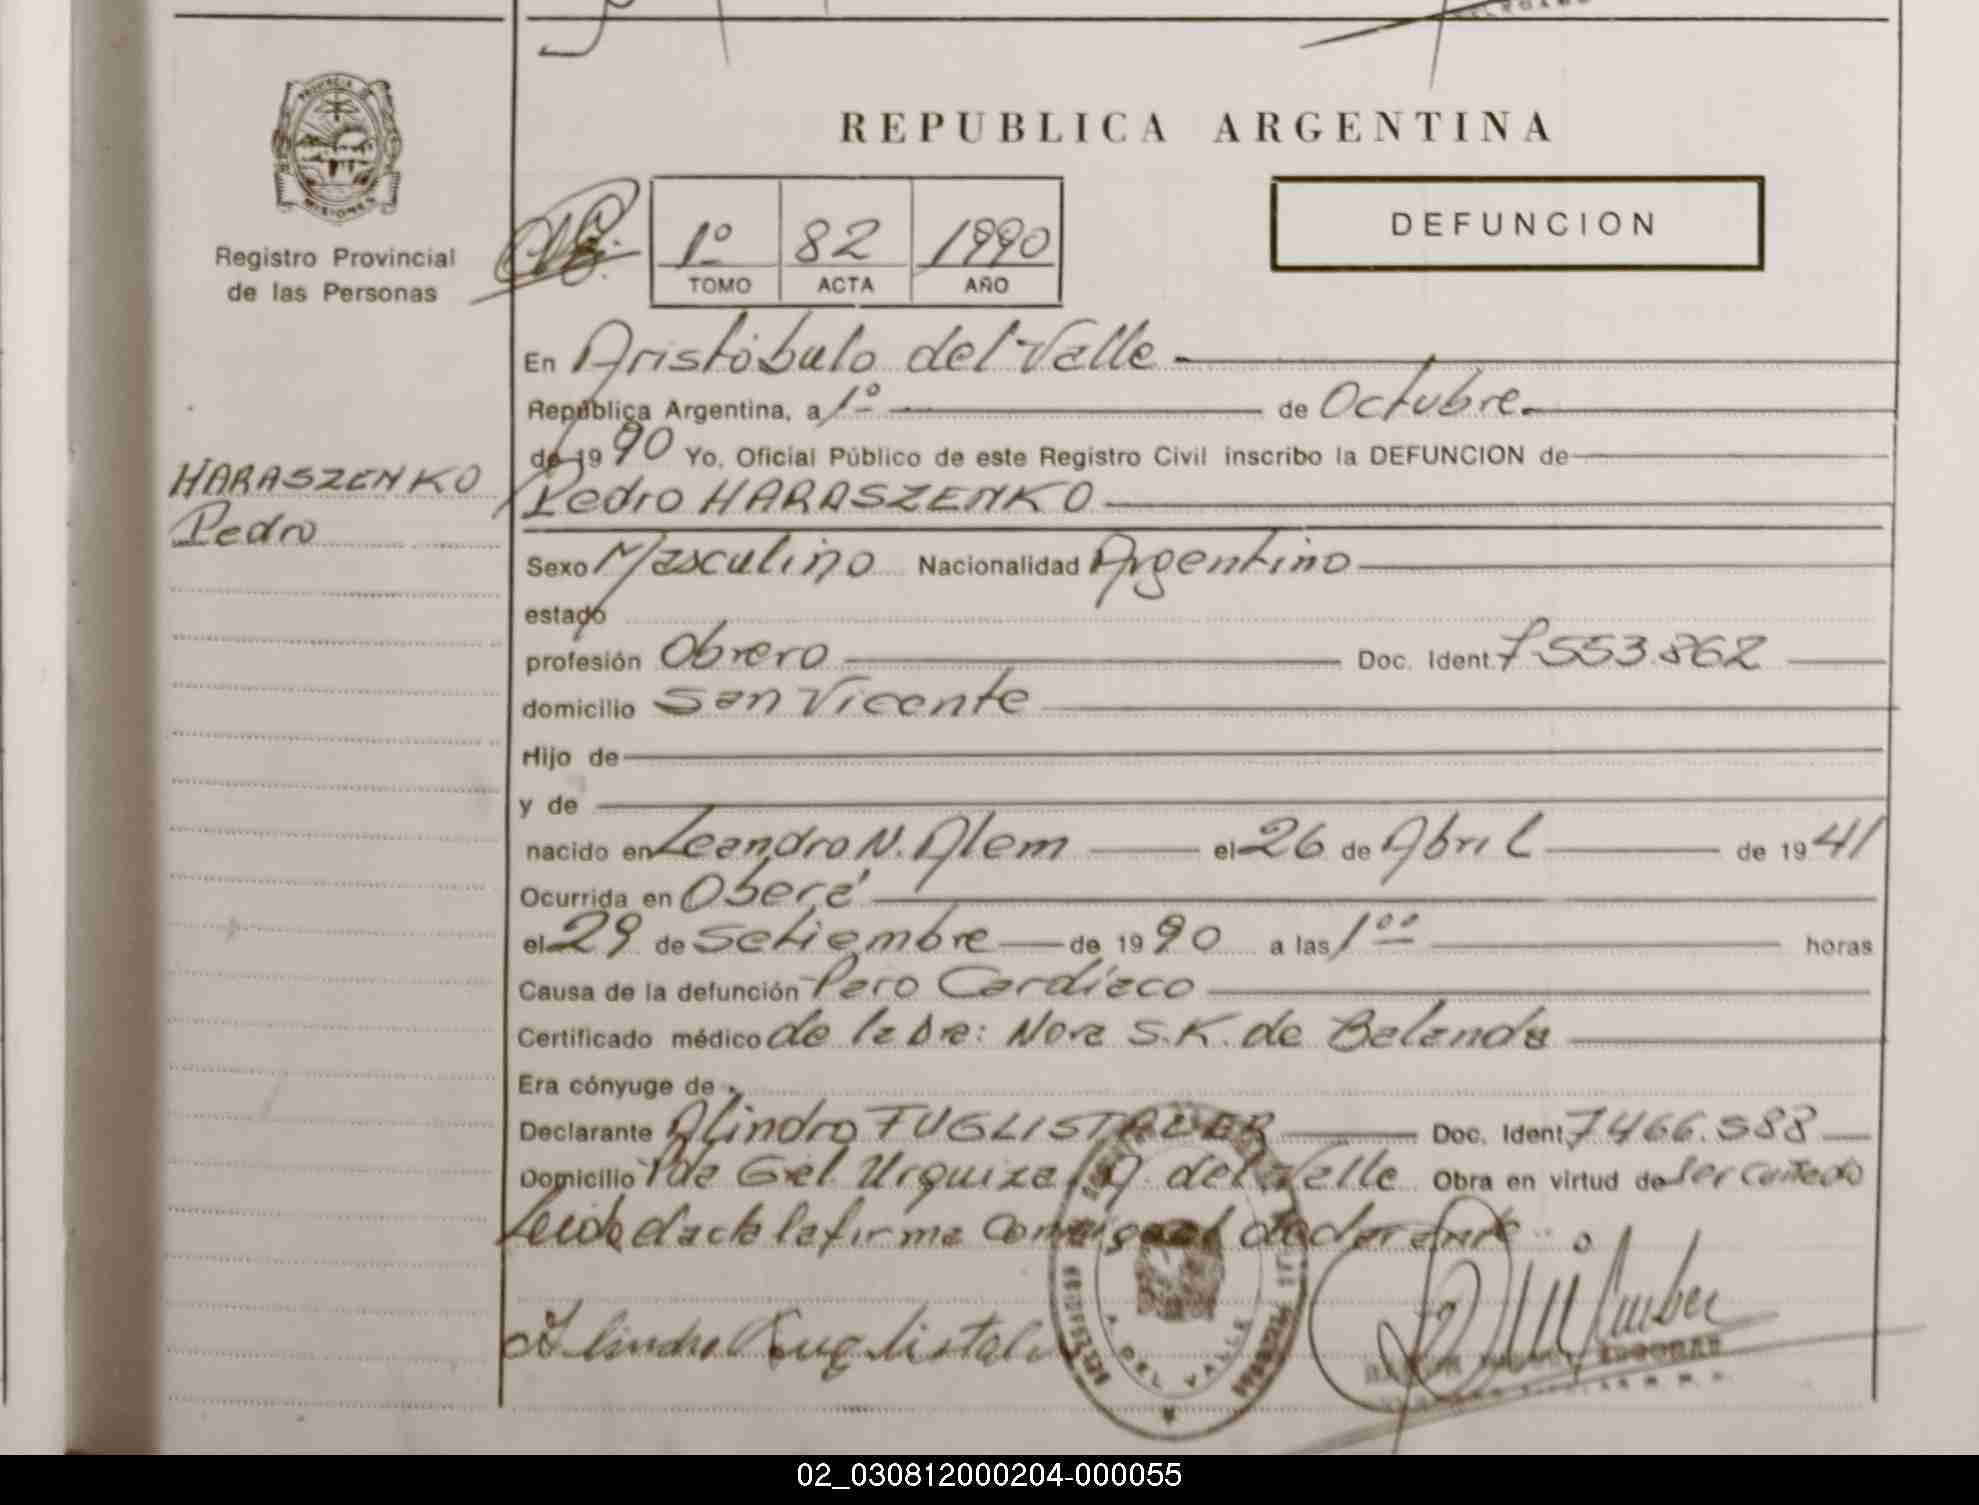 REPUBLICA ARGENTINA
PROVINCIA DE MISIONES
Registro Provincial
de las Personas
1º 82 1990
TOMO ACTA AÑO
DEFUNCION
HARASZENKO
Pedro
En Aristóbulo del Valle
República Argentina, a 1º de Octubre
de 1990 Yo, Oficial Público de este Registro Civil inscribo la DEFUNCION de
Pedro HARASZENKO
Sexo Masculino Nacionalidad Argentino
estado
profesión Obrero Doc. Ident. 7.553.862
domicilio San Vicente
Hijo de
y de
nacido en Leandro N. Alem el 26 de Abril de 1941
Ocurrida en Oberá
el 29 de Setiembre de 1990 a las 1ºº horas
Causa de la defunción Paro Cardíaco
Certificado médico de la Dra: Nora S.K. de Belanda
Era cónyuge de
Declarante Alindro FUGLISTALER Doc. Ident. 7.466.588
Domicilio Pda Gel. Urquiza A. del Valle Obra en virtud de ser cuñado
Leida el acta la firma conmigo el declarante
Alindro Fuglistaler
A. DEL VALLE
02_030812000204-000055